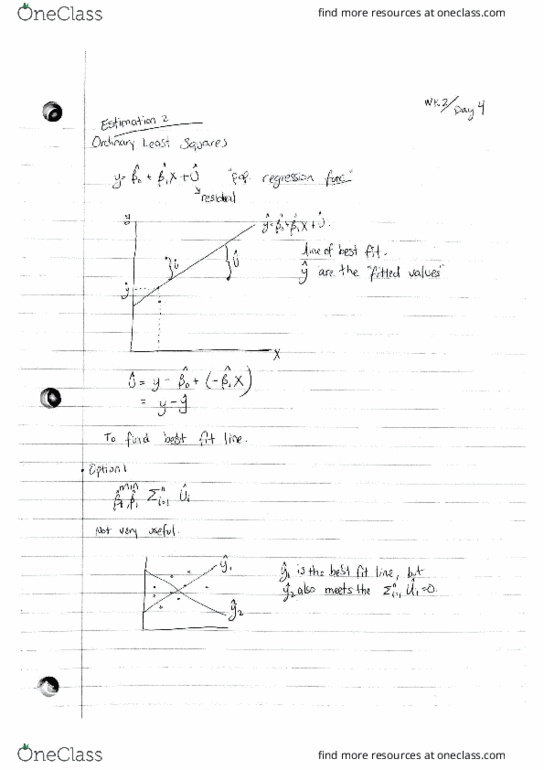 OneClass
find more resources at oneclass.com
WK2/Day 4
Estimation 2
Ordinary Least Squares
y = β̂₀ + β̂₁X + Û "pop. regression func"
residual
y
ŷ = β̂₀ + β̂₁X + Û.
line of best fit.
ŷ are the "fitted values"
û
Û
ŷ
X
Û = y - β̂₀ + (-β̂₁X)
= y - ŷ
To find best fit line.
• Option 1
min β̂₀, β̂₁ Σⁿᵢ₌₁ Ûᵢ
Not very useful.
ŷ₁
ŷ₂
ŷ₁ is the best fit line, but
ŷ₂ also meets the Σⁿᵢ₌₁ Ûᵢ = 0.
OneClass
find more resources at oneclass.com